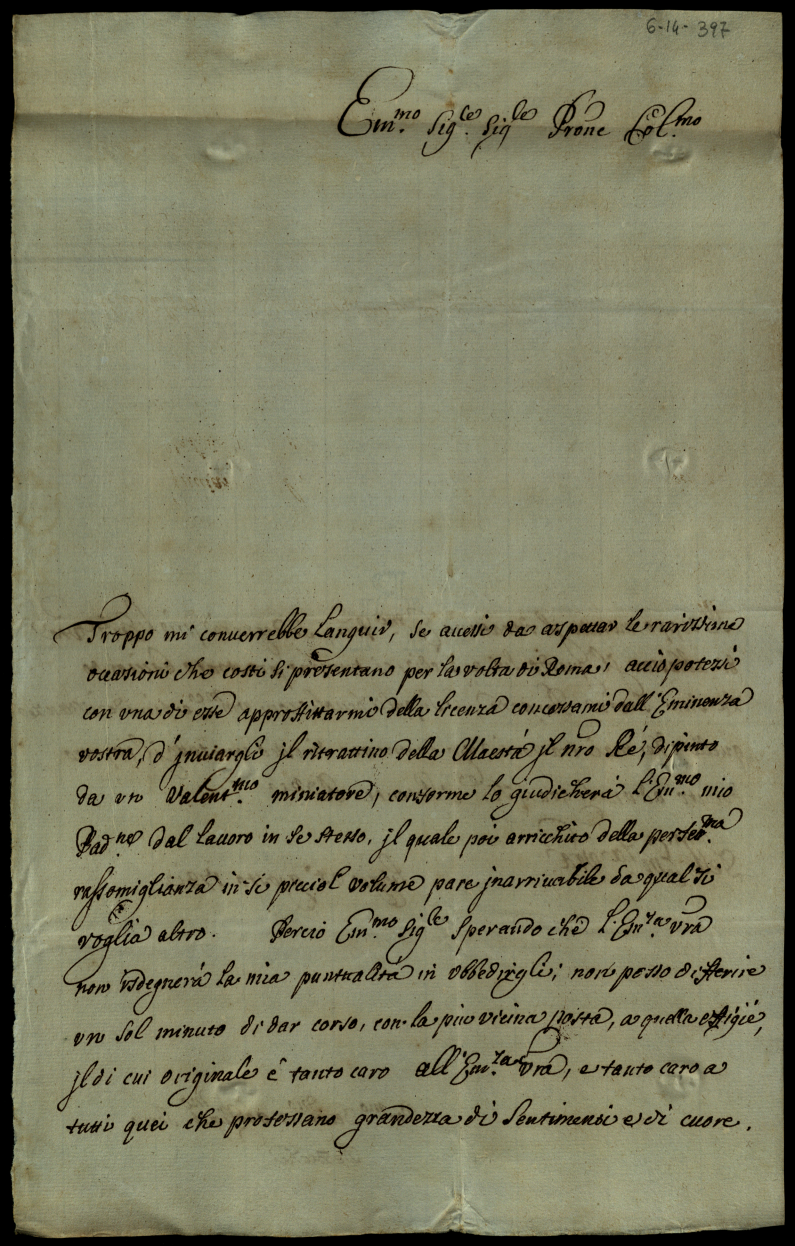 6-14-397
Em.mo Sig.re Sig.re Prone Col.mo
Troppo mi conuerrebbe languir, se auessi da aspettar le rarissime
occasioni che costì si presentano per la volta di Roma, acciò potessi
con vna di esse approffittarmi della licenza concessami dall'Eminenza
vostra, d'jnuiargli jl ritrattino della Maestà jl nro Ré, dipinto
da vn valent.mo miniatore, conforme lo giudicherà l'Em.mo mio
Pad.ne dal lauoro in se stesso, jl quale poi arricchito della perfett.ma
rassomiglianza in sì picciol volume pare jnarriuabile da qual si
voglia altro. Perciò Em.mo Sig.re sperando che l'Em.za vra
non isdegnerà la mia puntualità in vbbedirgli; non posso differire
vn sol minuto di dar corso, con la più vicina posta, a quella effigié,
jl di cui originale è tanto caro all'Em.za vra, e tanto caro a
tutti quei che professano grandezza di sentimenti e di cuore.